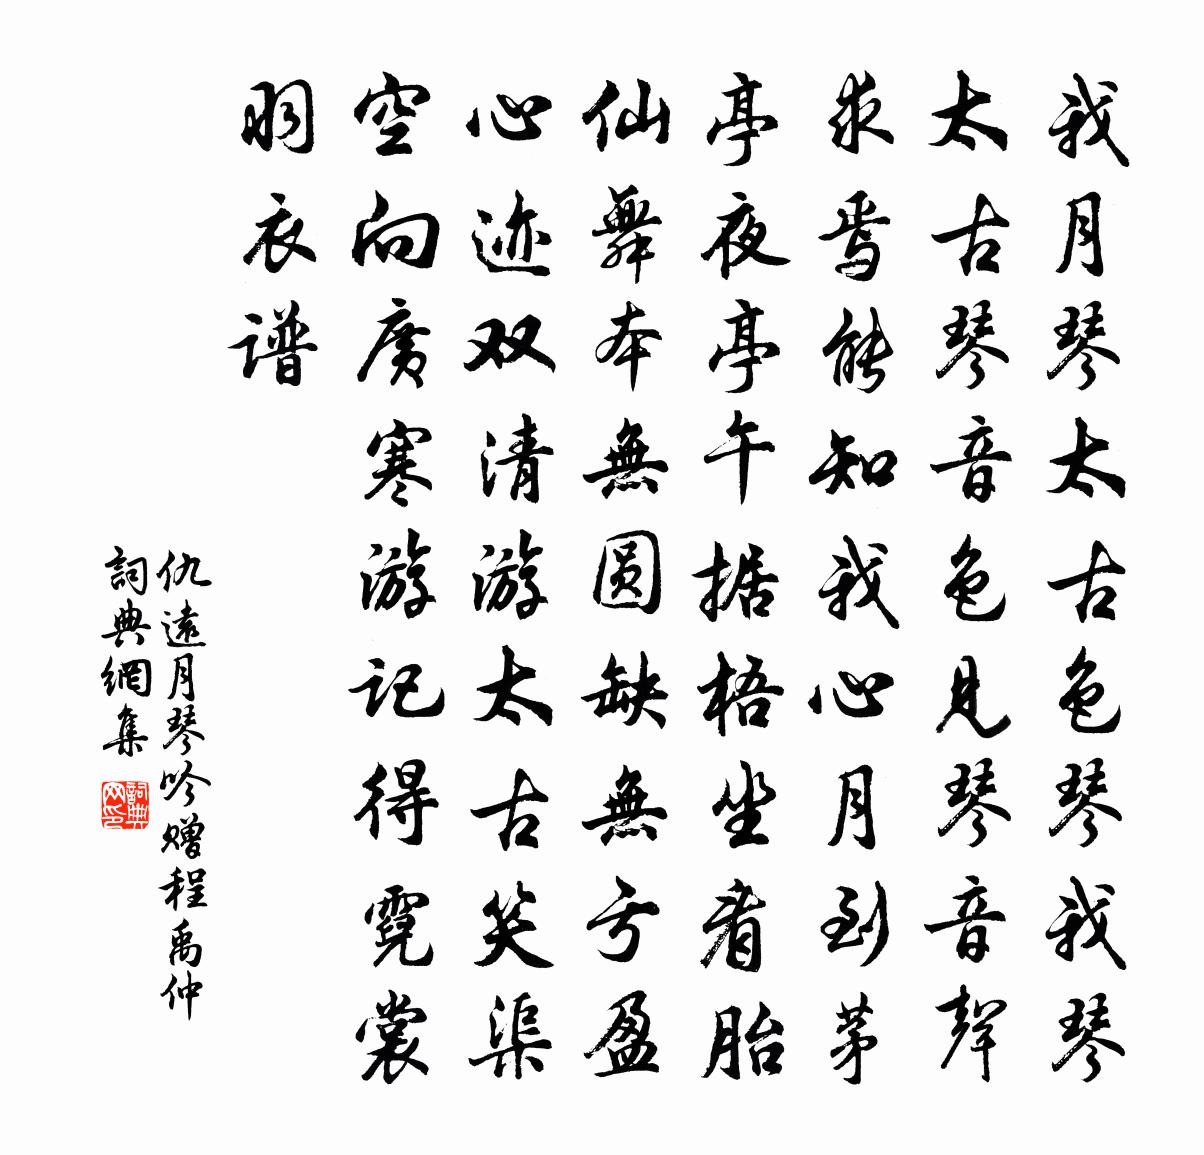 我月琴太古色琴我琴
太古琴音色见琴音聲
求焉能知我心月到茅
亭夜亭午据梧坐看胎
仙舞本無圆缺無亏盈
心迹双清游太古笑渠
空向廣寒游记得霓裳
羽衣谱
仇遠月琴吟赠程禹仲
詞典網集
詞典网印